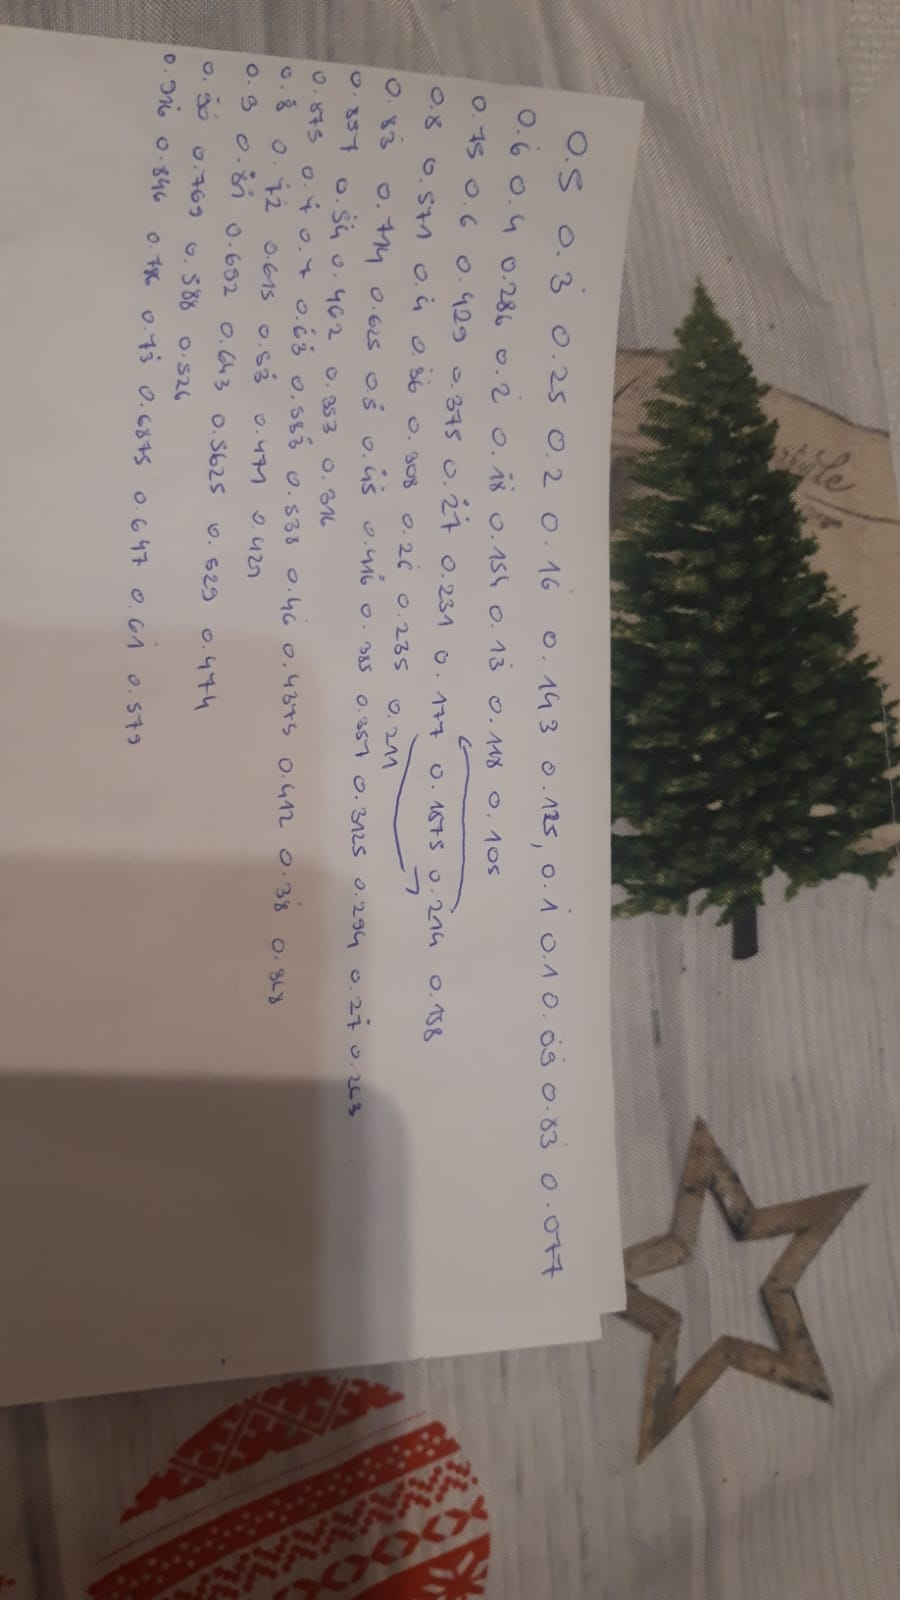 0.5 0.3̇ 0.25 0.2 0.16̇ 0.143 0.125, 0.1̇ 0.1 0.0̇9̇ 0.83̇ 0.077
0.6̇ 0.4 0.286 0.2̇ 0.1̇8̇ 0.154 0.13̇ 0.118 0.105
0.75 0.6 0.429 0.375 0.2̇7̇ 0.231 0.177 0.1875 0.214 0.158
0.8 0.571 0.4̇ 0.3̇6̇ 0.308 0.26̇ 0.235 0.211
0.83̇ 0.714 0.625 0.5̇ 0.4̇5̇ 0.416̇ 0.385 0.357 0.3125 0.294 0.27̇ 0.263
0.857 0.5̇4̇ 0.462 0.353 0.316
0.875 0.7̇ 0.7 0.6̇3̇ 0.583̇ 0.538 0.46̇ 0.4375 0.412 0.38̇ 0.368
0.8̇ 0.7̇2̇ 0.615 0.53̇ 0.471 0.421
0.9 0.8̇1̇ 0.692 0.643 0.5625 0.529 0.474
0.9̇0̇ 0.769 0.588 0.526
0.916̇ 0.846 0.786 0.73̇ 0.6875 0.647 0.61̇ 0.579
style